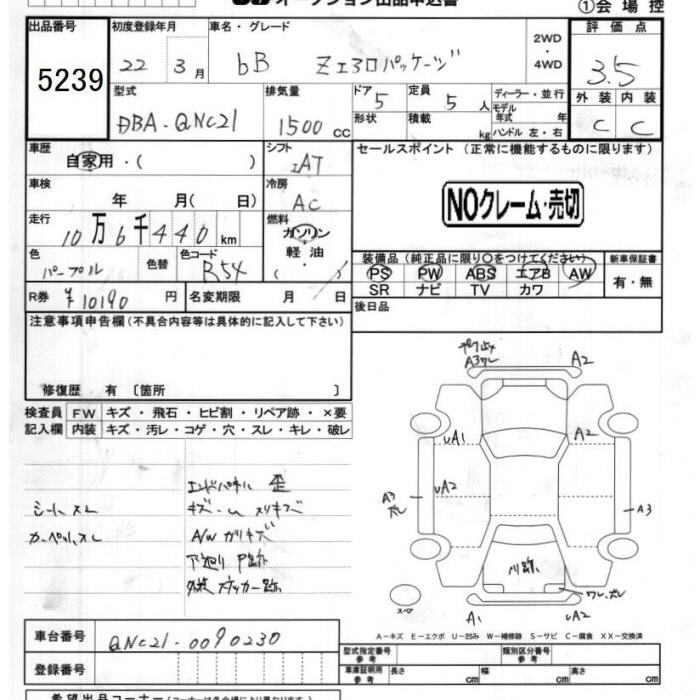 オークション出品申込書
①会場控
出品番号
5239
初度登録年月
22 3月
車名・グレード
bB Zエアロパッケージ
2WD
・
4WD
評価点
3.5
型式
DBA-QNC21
排気量
1500cc
ドア
5
定員
5人
ディーラー・並行
モデル年式 年
形状
積載 kg
ハンドル 左・右
外装
C
内装
C
車歴
自家用・( )
シフト
IAT
セールスポイント (正常に機能するものに限ります)
NOクレーム・売切
車検
年 月( 日)
冷房
AC
走行
10万6千440km
燃料
ガソリン
軽油・
( )
色
パープル
色替
色コード
R54
装備品 (純正品に限り○をつけてください)
PS PW ABS エアB AW
SR ナビ TV カワ
新車保証書
有・無
R券
¥10190円
名変期限 月 日
後日品
注意事項申告欄(不具合内容等は具体的に記入して下さい)
修復歴 有 〔箇所 〕
検査員記入欄
FW キズ・飛石・ヒビ割・リペア跡・×要
内装 キズ・汚レ・コゲ・穴・スレ・キレ・破レ
シートスレ
カーペットスレ
エンドパネル 歪
キズ・U スリキズ
A/Wガリキズ
下廻り P跡
外装 ステッカー跡
A3ワレ
A2
UA1
A2
UA2
A3
スレ
A3
リ跡
ワレ、ズレ
スペア
A1
UA2
A-キズ E-エクボ U-凹み W-補修跡 S-サビ C-腐食 XX-交換済
車台番号
QNC21-0090230
登録番号
型式指定番号
参考
類別区分番号
参考
車庫証明用
参考
長さ cm
幅 cm
高さ cm
希望出品コーナー